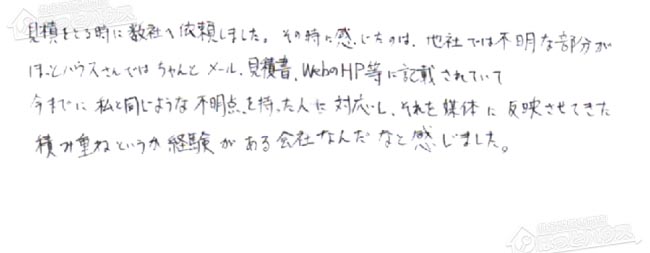 見積をとる時に数社へ依頼しました。その時に感じたのは、他社では不明な部分が
ほっとハウスさんではちゃんとメール、見積書、WebのHP等に記載されていて
今までに私と同じような不明点を持った人に対応し、それを媒体に反映させてきた
積み重ねというか経験がある会社なんだなと感じました。